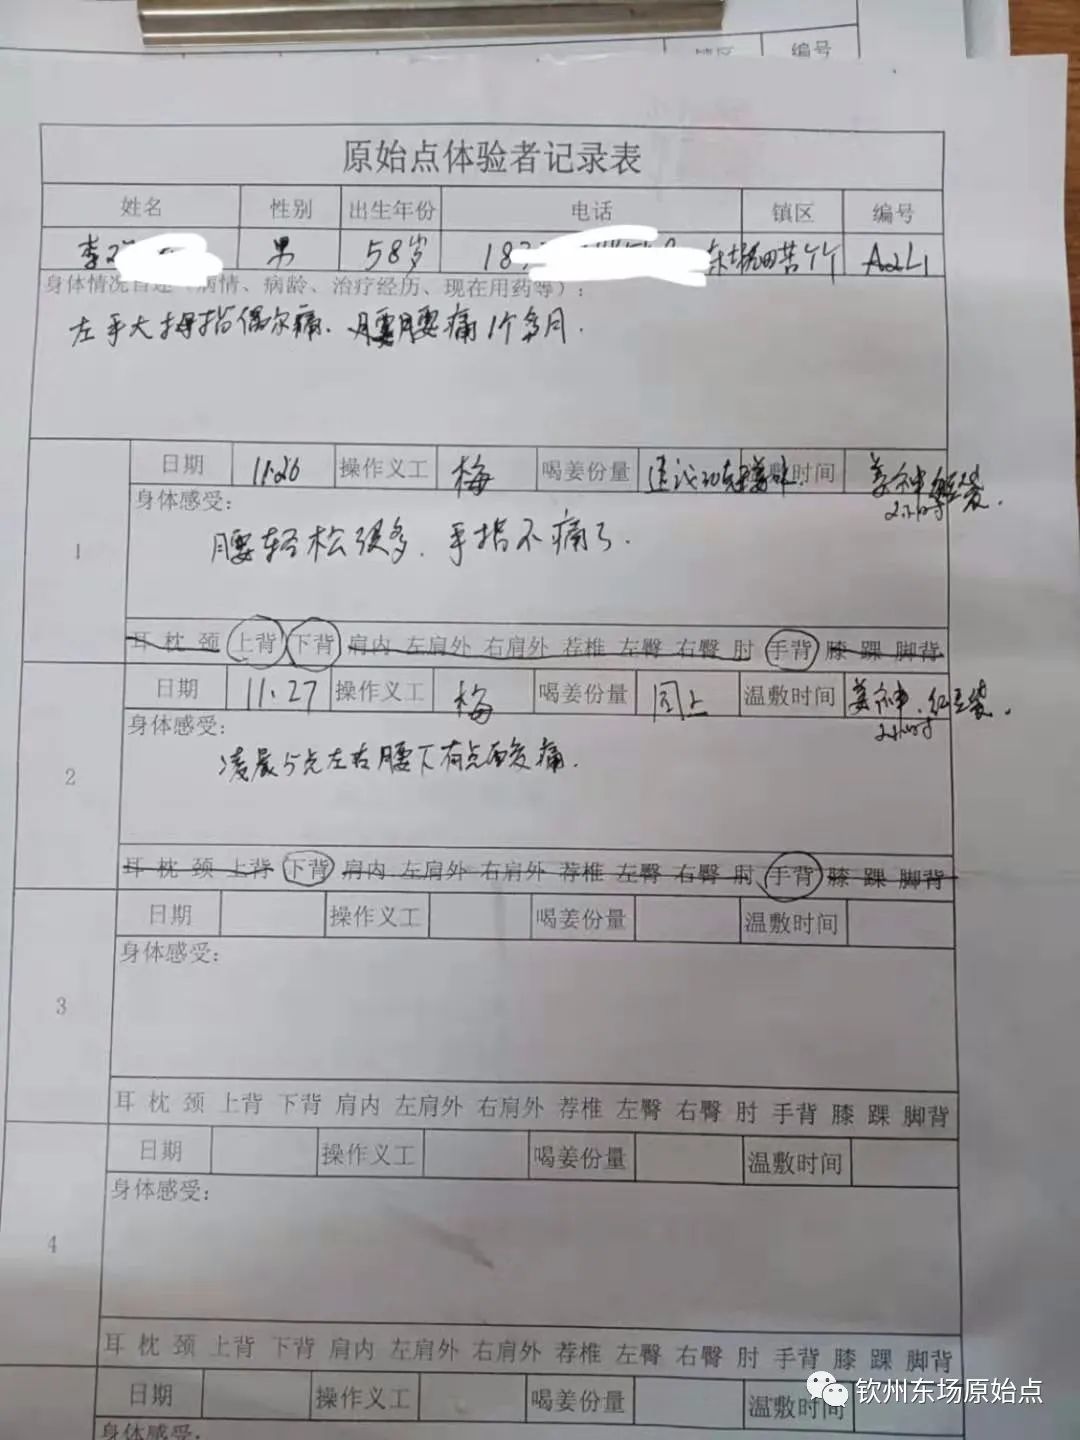 镇区 编号
原始点体验者记录表
姓名 性别 出生年份 电话 镇区 编号
李 男 58岁 183 A2L1
身体情况自述(病情、病龄、治疗经历、现在用药等):
左手大拇指偶尔痛. 腰痛1个多月.
日期 11.26 操作义工 梅 喝姜份量 时间
2小时
身体感受:
腰轻松很多. 手指不痛了.
1
耳 枕 颈 上背 下背 肩内 左肩外 右肩外 荐椎 左臀 右臀 肘 手背 膝 踝 脚背
日期 11.27 操作义工 梅 喝姜份量 同上 温敷时间 姜神.红豆袋.
2小时
身体感受:
凌晨5点左右腰下有点酸痛.
2
耳 枕 颈 上背 下背 肩内 左肩外 右肩外 荐椎 左臀 右臀 肘 手背 膝 踝 脚背
日期 操作义工 喝姜份量 温敷时间
身体感受:
3
耳 枕 颈 上背 下背 肩内 左肩外 右肩外 荐椎 左臀 右臀 肘 手背 膝 踝 脚背
日期 操作义工 喝姜份量 温敷时间
身体感受:
4
耳 枕 颈 上背 下背 肩内 左肩外 右肩外 荐椎 左臀 右臀 肘 手背 膝 踝 脚背
日期 操作义工 喝姜份量 温敷时间
身体感受:
钦州东场原始点